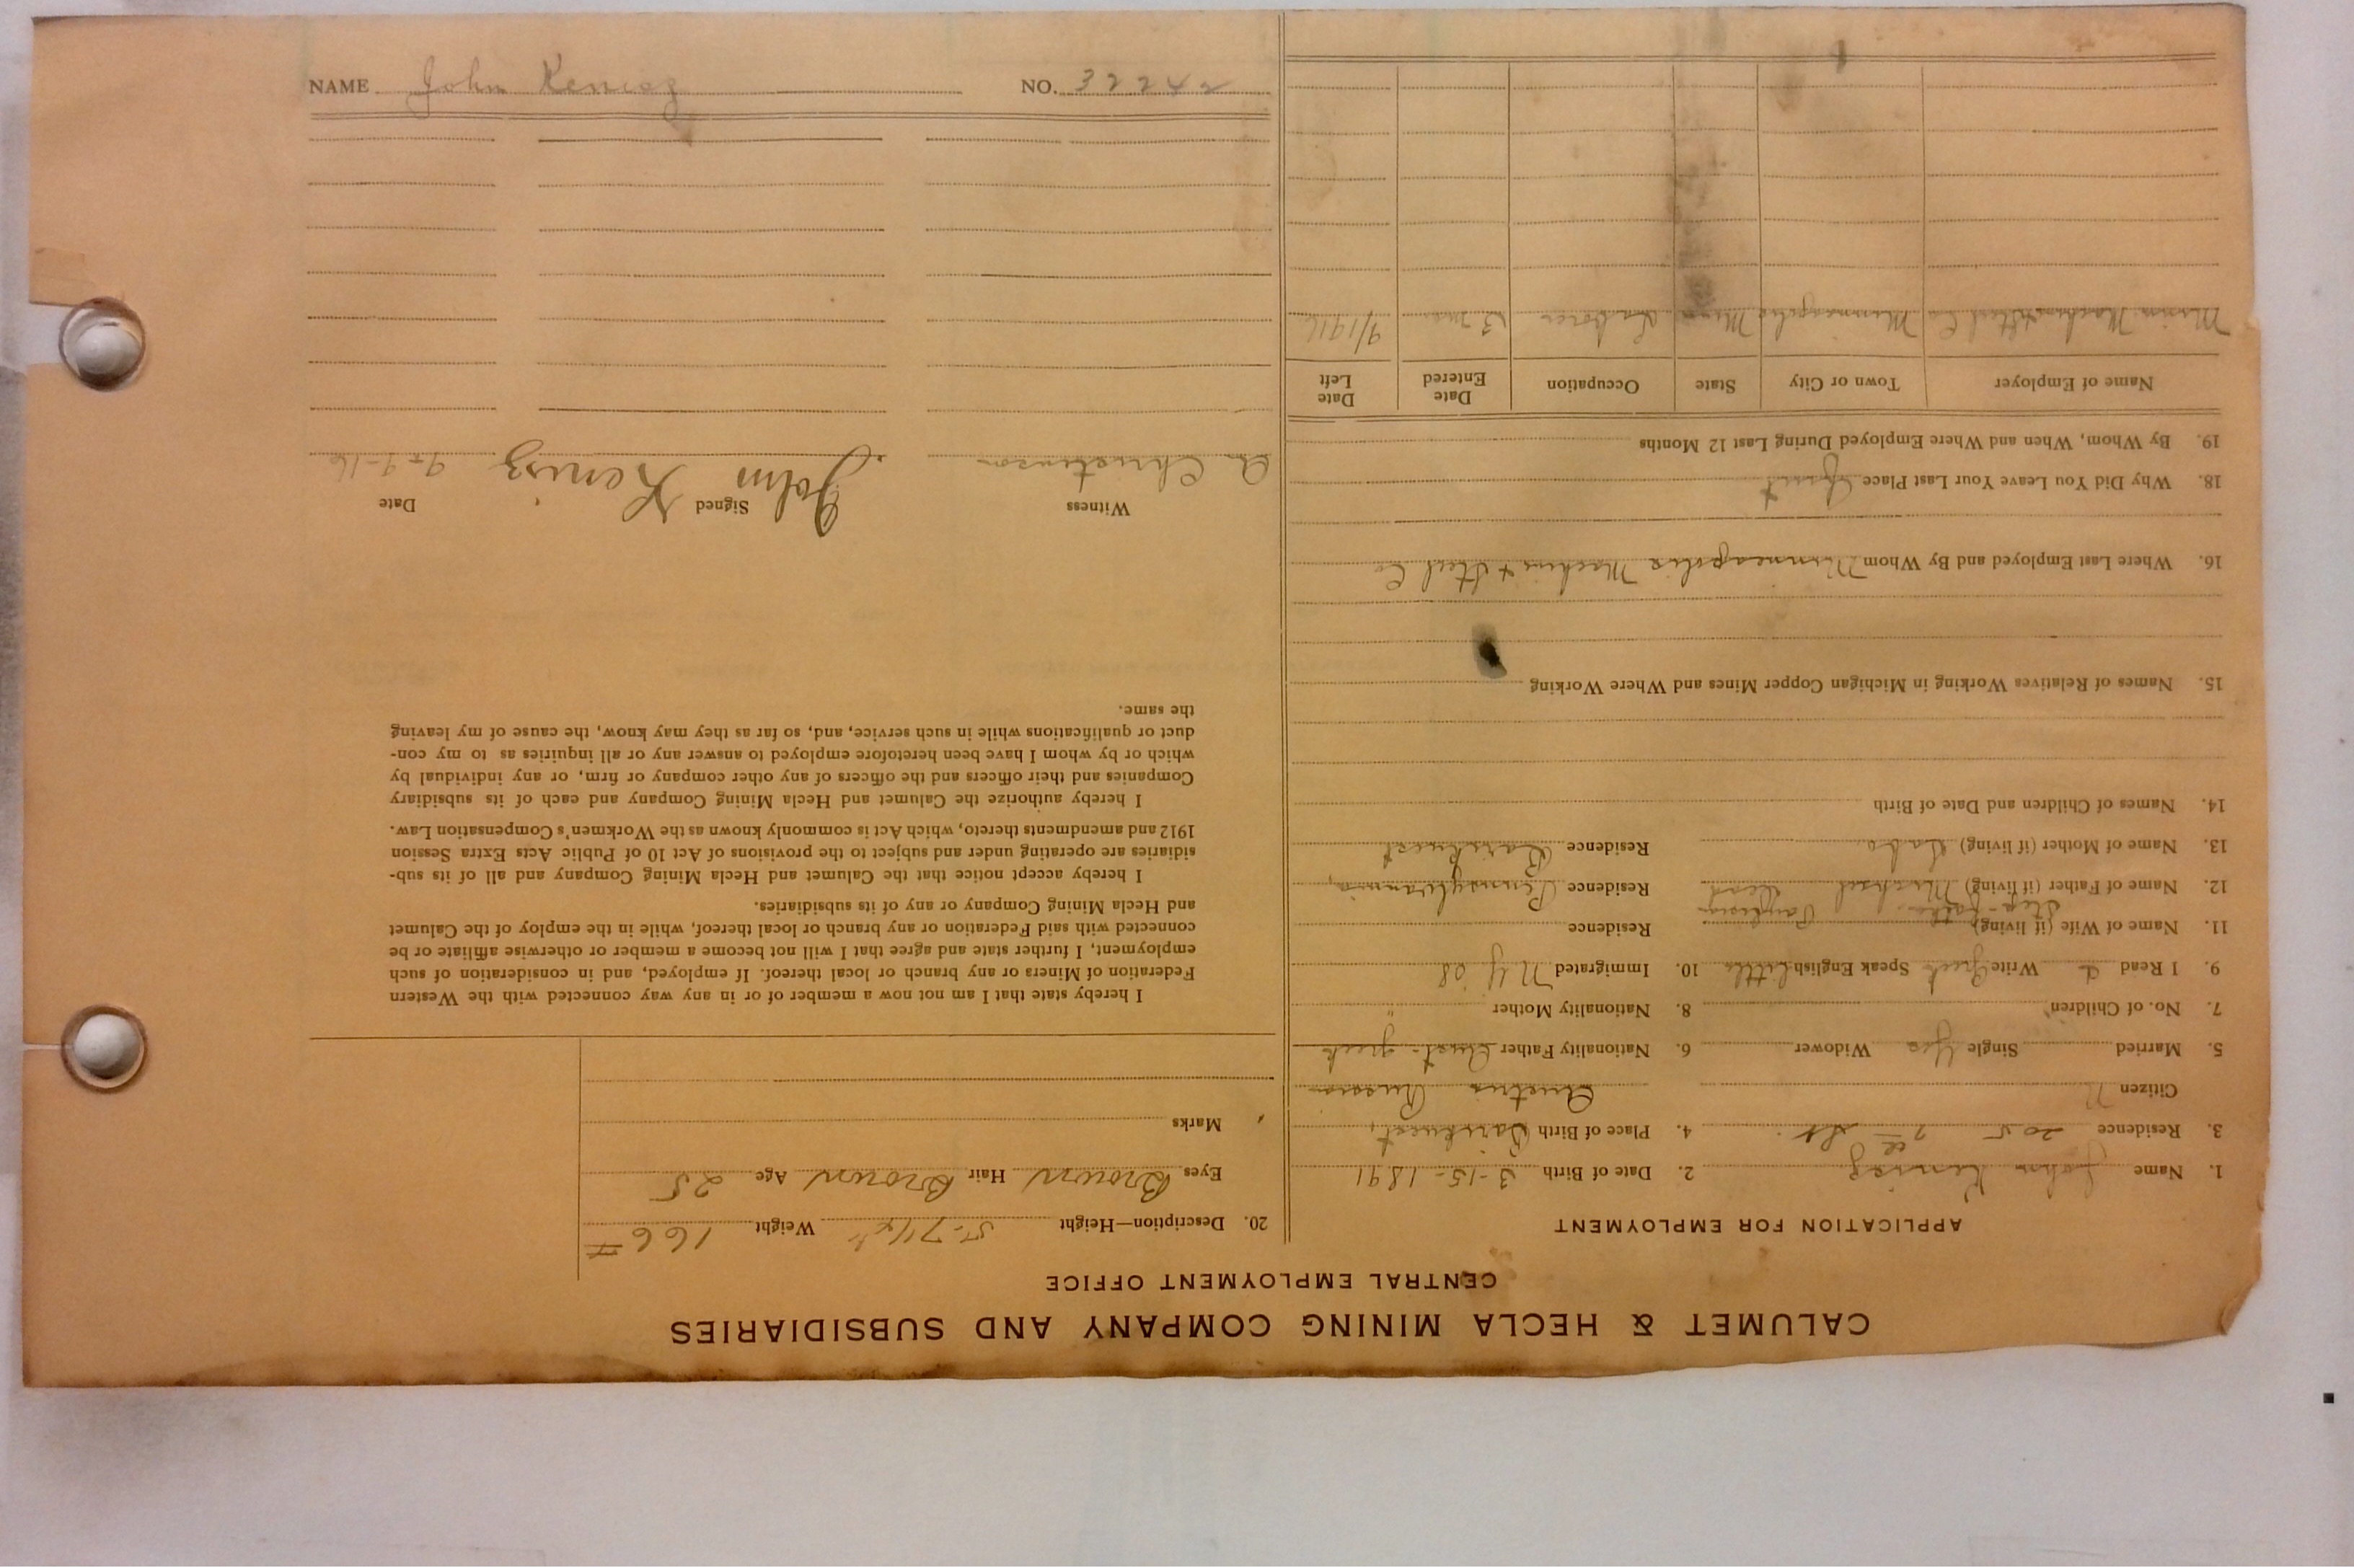 NAME John Kenisz NO. 32242
CALUMET & HECLA MINING COMPANY AND SUBSIDIARIES
CENTRAL EMPLOYMENT OFFICE
APPLICATION FOR EMPLOYMENT
1. Name John 2. Date of Birth 3-15-1891
3. Residence 205 7 St. 4. Place of Birth
Citizen N Austria Russia
5. Married Single Yes Widower 6. Nationality Father Aust- greek
7. No. of Children 8. Nationality Mother "
9. I Read & Write Greek Speak English Little 10. Immigrated N Y 08
11. Name of Wife (if living) Residence
Step-Father
12. Name of Father (if living) Michael dead Residence Pennsylvania
13. Name of Mother (if living) Residence
14. Names of Children and Date of Birth
15. Names of Relatives Working in Michigan Copper Mines and Where Working
16. Where Last Employed and By Whom Minneapolis Machine & Steel Co
18. Why Did You Leave Your Last Place Quit
19. By Whom, When and Where Employed During Last 12 Months
Name of Employer Town or City State Occupation Date Entered Date Left
Machine & Steel Co Minneapolis Minn Laborer 3 mos 9/1916
20. Description—Height 5-7 1/4 Weight 166 #
Eyes Brown Hair Brown Age 25
Marks
I hereby state that I am not now a member of or in any way connected with the Western
Federation of Miners or any branch or local thereof. If employed, and in consideration of such
employment, I further state and agree that I will not become a member or otherwise affiliate or be
connected with said Federation or any branch or local thereof, while in the employ of the Calumet
and Hecla Mining Company or any of its subsidiaries.
I hereby accept notice that the Calumet and Hecla Mining Company and all of its sub-
sidiaries are operating under and subject to the provisions of Act 10 of Public Acts Extra Session
1912 and amendments thereto, which Act is commonly known as the Workmen's Compensation Law.
I hereby authorize the Calumet and Hecla Mining Company and each of its subsidiary
Companies and their officers and the officers of any other company or firm, or any individual by
which or by whom I have been heretofore employed to answer any or all inquiries as to my con-
duct or qualifications while in such service, and, so far as they may know, the cause of my leaving
the same.
Witness Signed Date
Christenson John Kenisz 9-9-16